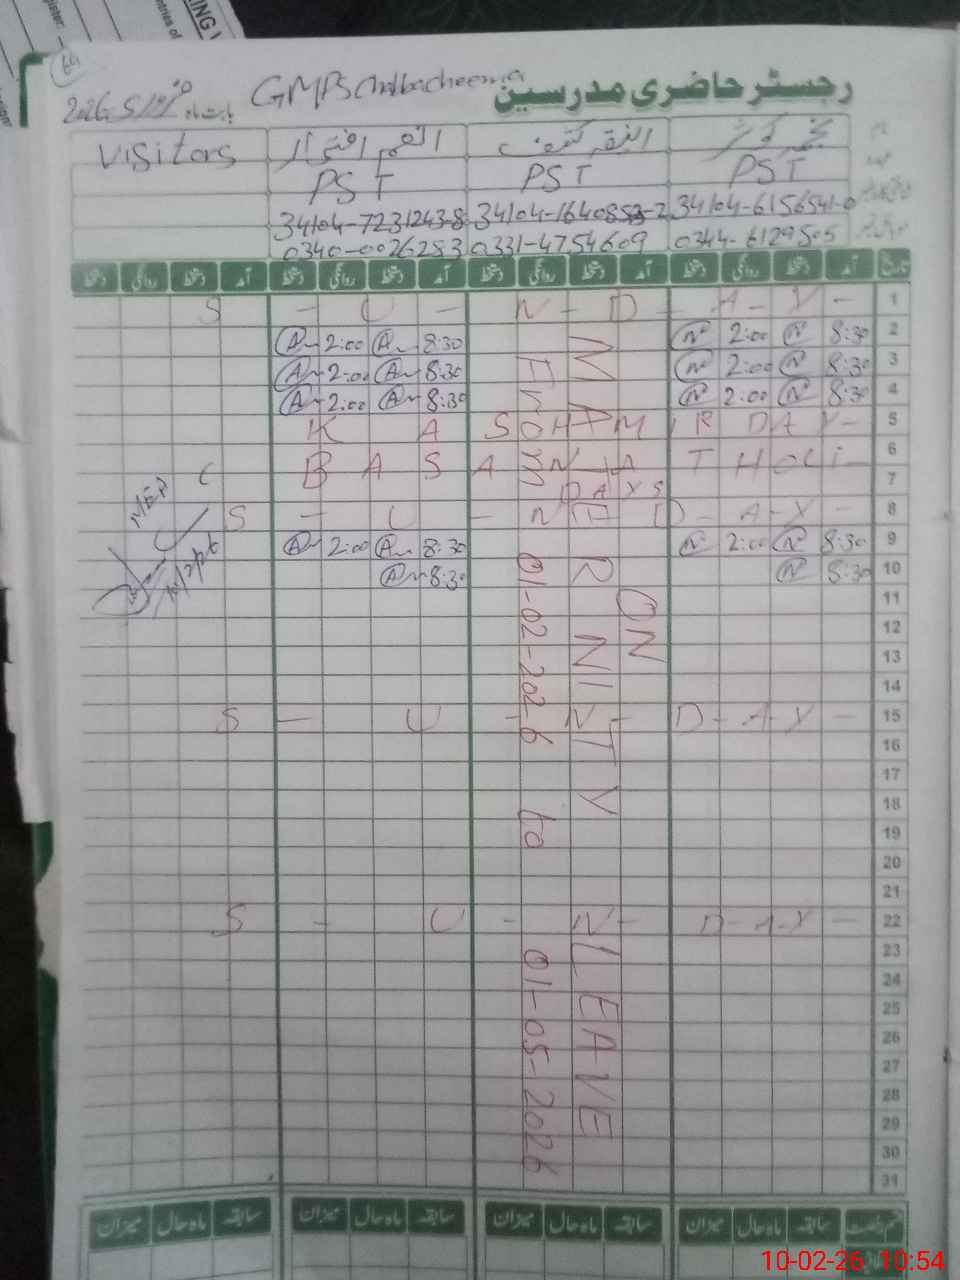 GMPS
رجسٹر حاضری مدرسین
بابت ماہ فروری 2026
Visitors
PST PST PST
34104-7231243-8 34104-1640853-2 34104-6156541-0
0340-0026283 0331-4754609 0344-6129505
دستخط روانگی دستخط آمد دستخط روانگی دستخط آمد دستخط روانگی دستخط آمد دستخط روانگی دستخط آمد تاریخ
S - U - N - D - A - Y - 1
A 2:00 A 8:30 N 2:00 N 8:30 2
A 2:00 A 8:30 N 2:00 N 8:30 3
A 2:00 A 8:30 N 2:00 N 8:30 4
KASHMIR DAY 5
BASANT HOLI 6
DAYS 7
S - U - N - D - A - Y - 8
A 2:00 A 8:30 N 2:00 N 8:30 9
A 8:30 N 8:30 10
11
12
13
14
S - U - N - D - A - Y - 15
16
17
18
19
20
21
S - U - N - D - A - Y 22
23
24
25
26
27
28
29
30
31
ON
MATERNITY LEAVE
From 01-02-2026 to 01-05-2026
میزان ماہ حال سابقہ میزان ماہ حال سابقہ میزان ماہ حال سابقہ میزان ماہ حال سابقہ قسم رخصت
10-02-26 10:54